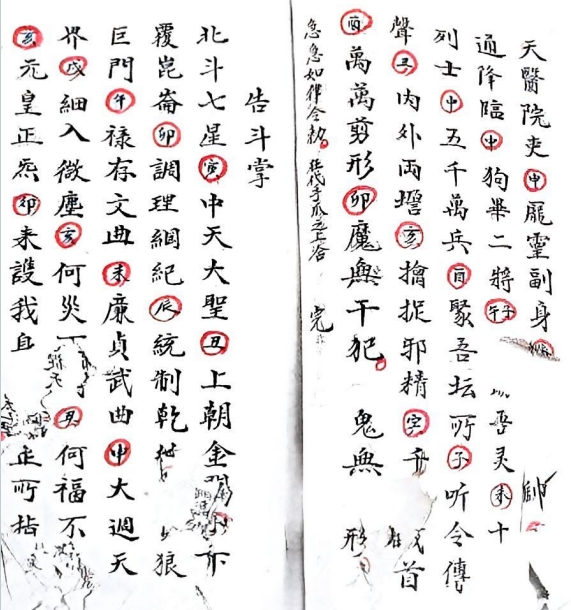 天醫院吏申厖靈副身
通降臨申狗畢二將午子吾灵未十
列士申五千萬兵酉聚吾坛所子听令傳
聲子内外両壇亥擒捉邪精字首
酉萬萬剪形卯魔無干犯鬼無形
急急如律令勅
完
告斗掌
北斗七星寅中天大聖丑上朝金
覆崑崙卯調理綱紀辰統制乾狼
巨門午禄存文曲未廉貞武曲申大週天
界戌細入微塵亥何災丑何福不
亥元皇正炁卯来護我自正所指